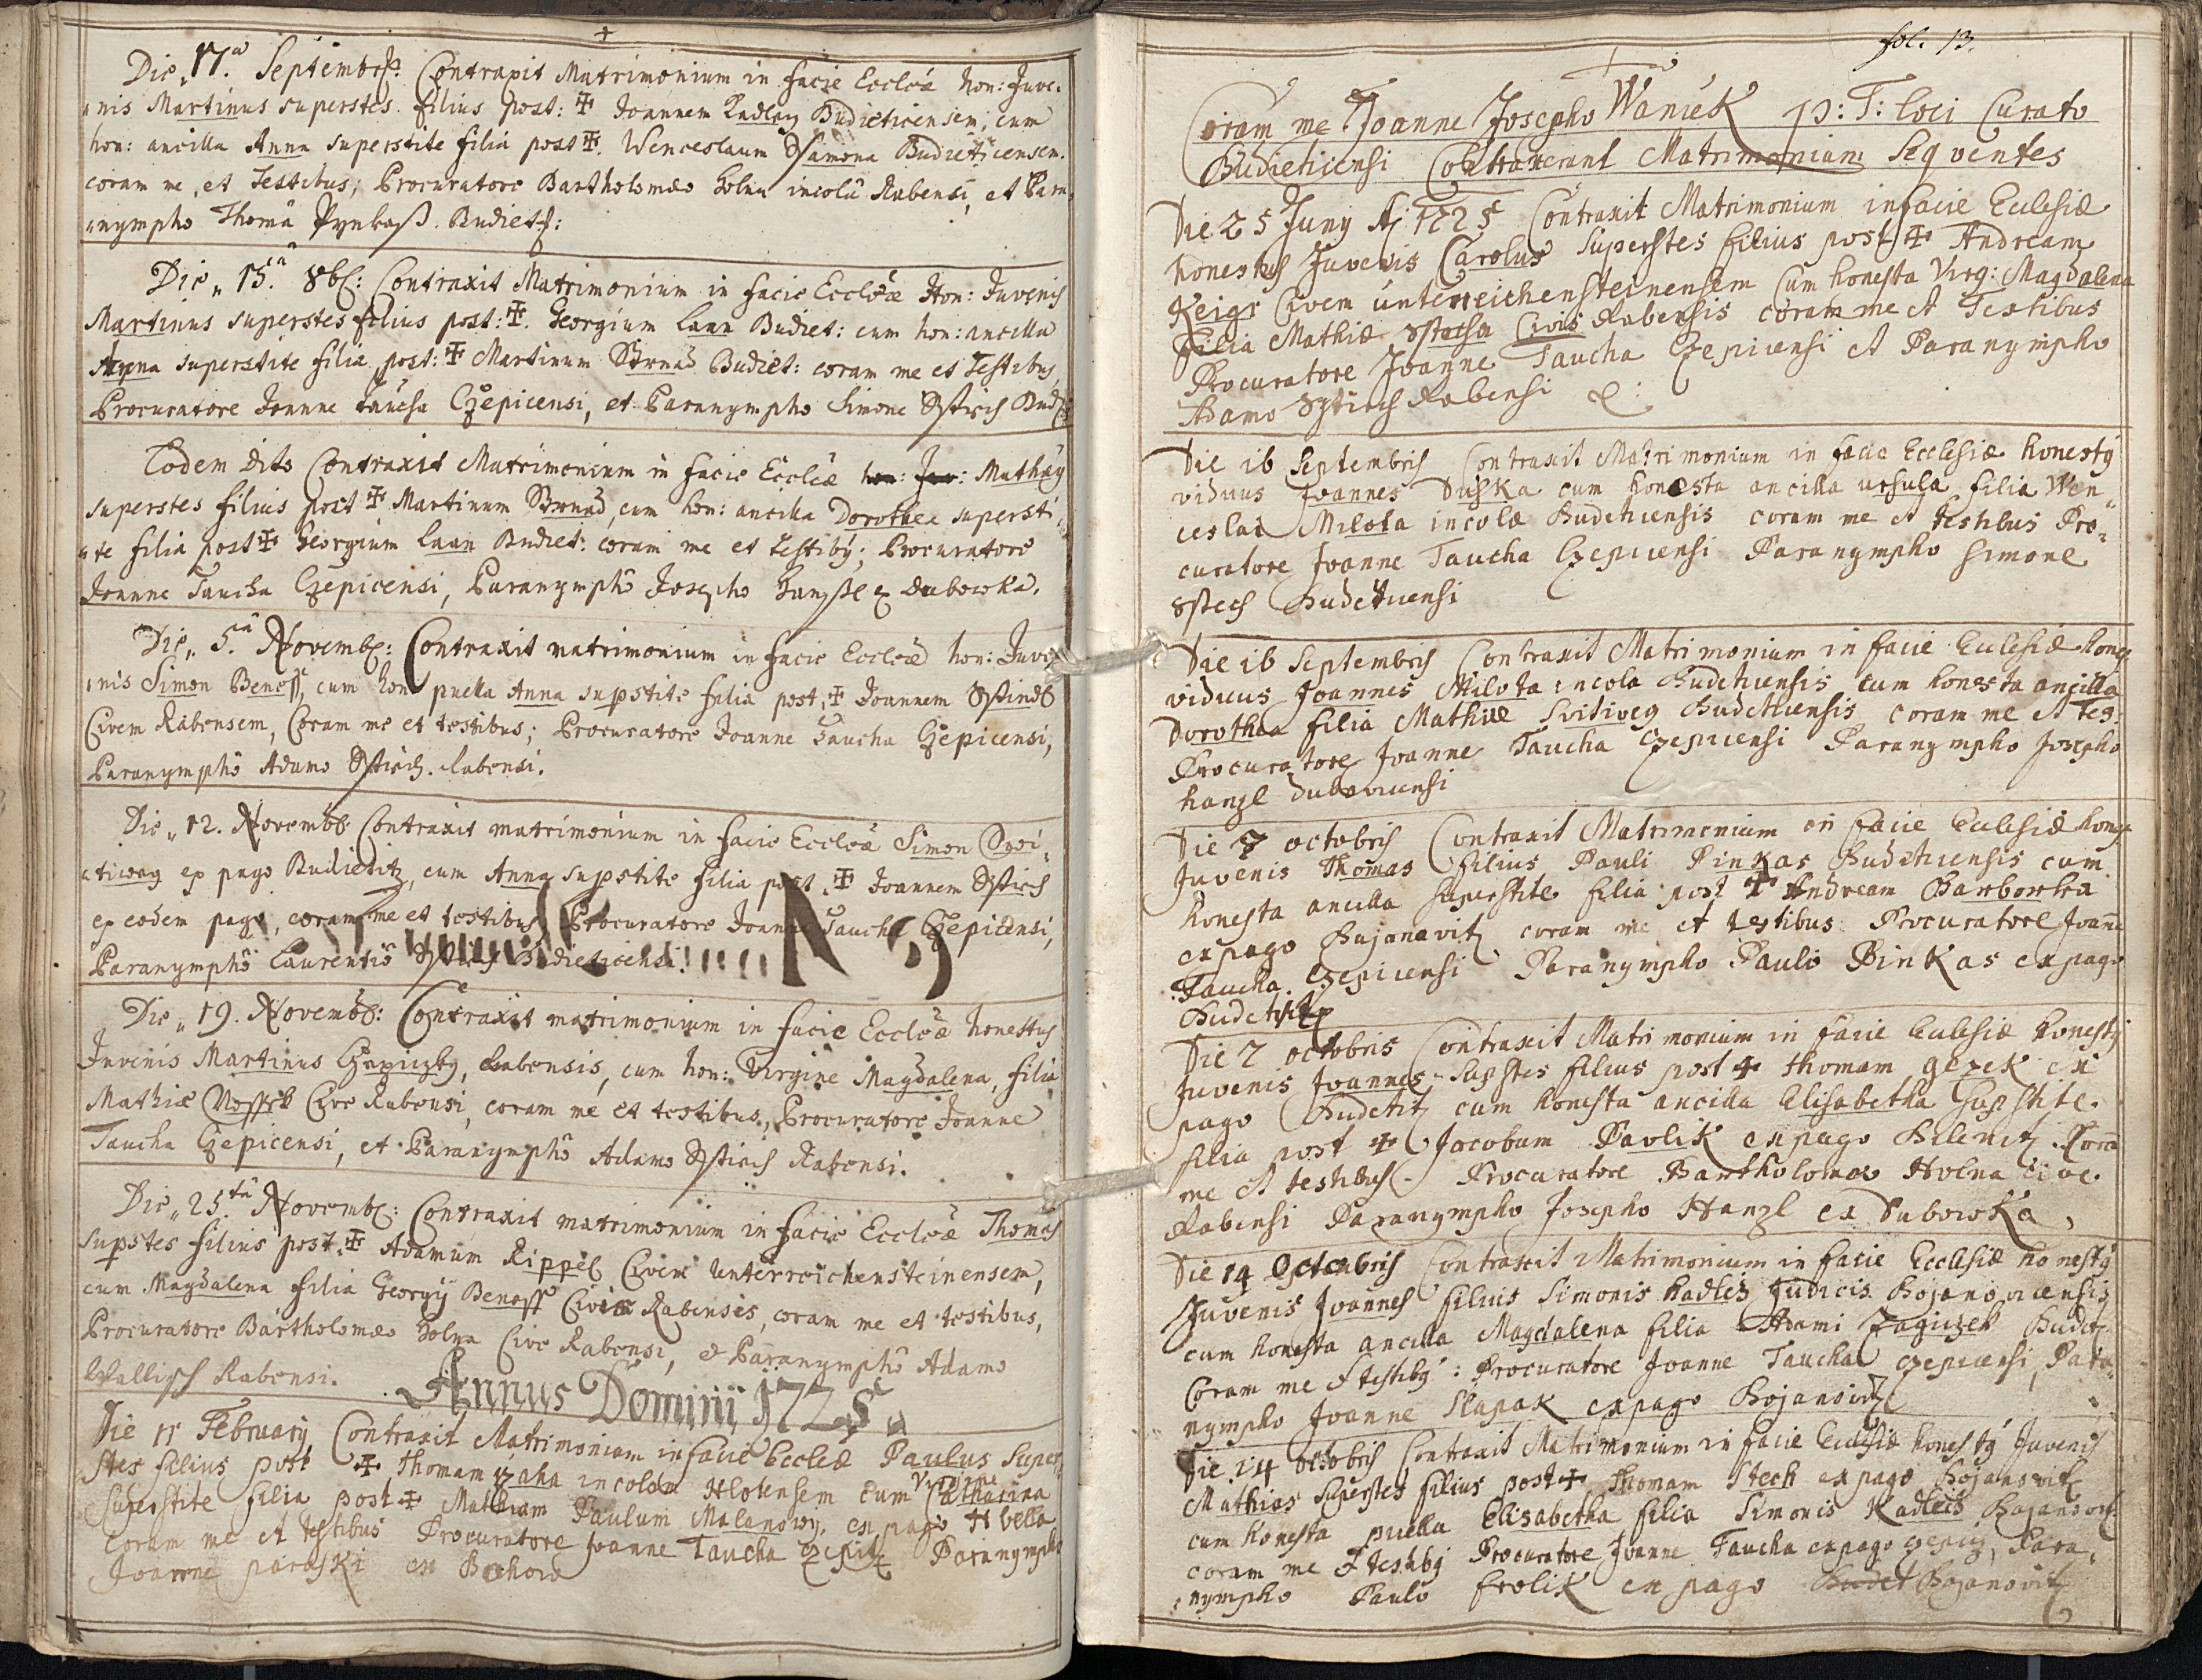 Die 17.a Septembris: Contraxit Matrimonium in facie Eccl̄æ hon: Juve,
,nis Martinus superstes filius post: ✠ Joannem Kadlecz Budieticensem, cum
hon: ancilla Anna superstite filia post ✠. Wenceslaum Ssamona Budieticensem.
coram me, et Testibus; Procuratore Bartholomæo Holna incolâ Rabensi, et Para,
,nympho Thomâ Pynkaß. Budiet:
Die„ 15.ta 8b: Contraxit Matrimonium in facie Eccl̄æ Hon: Juvenis
Martinus superstes filius post: ✠. Georgium Laan Budiet: cum hon: ancilla
Anna superstite filia post: ✠ Martinum Strnad Budiet: coram me et Testibus,
Procuratore Joanne Taucha Czepicensi, et Paranympho Simone Sstich Bud:
Eodem dito Contraxit Matrimonium in facie Eccl̄æ hon: Juv: Mathæy
superstes filius post ✠ Martinum Strnad, cum hon: ancilla Dorothea supersti,
,te filia post ✠ Georgium Laan Budiet: coram me et testibꝰ; Procuratore
Joanne Taucha Czepicensi, Paranymphô Josepho Hanzl ex Dubowka.
Die„ 5.ta Novemb: Contraxit matrimonium in facie Eccl̄æ hon: Juve,
,nis Simon Beneß, cum hon puella Anna supstite filia post, ✠ Joannem Sstindl
Civem Rabensem, Coram me et testibus; Procuratore Joanne Taucha Czepicensi,
Paranymphô Adamo Sstich. Rabensi.
Die„ 12. Novemb: Contraxit matrimonium in facie Eccl̄æ Simon Swi,
,tiway ex pago Budietitz, cum Anna supstite filia post, ✠ Joannem Sstich
ex eodem pago, coram me et testibus, Procuratore Joanne Taucha Czepicensi,
Paranymphô Laurentio Sstich Budieticensi.
Die„ 19. Novemb: Contraxit matrimonium in facie Eccl̄æ honestus
Juvenis Martinus Czepiczky, Rabensis, cum hon: Virgine Magdalena, filia
Mathiæ Wosstek Cive Rabensi, coram me et testibus, Procuratore Joanne
Taucha Czepicensi, et Paranymphô Adamo Sstich Rabensi.
Die„ 25.ta Novemb: Contraxit matrimonium in facie Eccl̄æ Thomas
supstes filius post, ✠ Adamum Rippel Civem Unterreichensteinensem,
cum Magdalena filia Georgij Beness Civis Rabensis, coram me et testibus,
Procuratore Bartholomæo Holna Cive Rabensi, & Paranymphô Adamo
Wallisch Rabensi.
Annus Domini 1725
Die 11 February Contraxit Matrimonium in facie Eccl̄iæ Paulus Super,
stes filius post ✠ Thomam zaha incolam Hlotensem cum Virgine Catharina
Superstite filia post ✠ Mathiam Paulum Malanowy, ex pago
Coram me et testibus Procuratore Joanne Taucha Czepitz Paranympho
Joanne paraski ex
fol. 13.
Coram me Joanne Josepho Waniek p: T: loci Curato
Budieticensi Contraxerant Matrimonium Seqventes
Die 25 Juny Aj 1725 Contraxit Matrimonium in facie Eclesiæ
honestus Juvenis Carolus Superstes filius post ✠ Andream
Keigr Civem unterreichensteinensem Cum honesta Virg: Magdalena
filia Mathiæ Civis Rabensis coram me et Testibus
Procuratore Joanne Taucha Czepicensi et Paranympho
Adamo Sstich Rabensi
Die 16 Septembris Contraxit Matrimonium in facie Ecclesiæ honestꝰ
viduus Joannes Duska cum honesta ancilla ursula filia Wen„
ceslai Milota incolæ Budeticensis coram me et testibus Pro„
curatore Joanne Taucha Czepicensi Paranympho Simone
Sstech Budeticensi
Die 16 Septembris Contraxit Matrimonium in facie Eclesiæ hones
viduus Joannes Milota incola Budeticensis cum honesta ancilla
Dorothea filia Mathiæ Svitiwey Budeticensis coram me et Tes:
Procuratore Joanne Taucha Czepicensi Paranympho Josepho
hanzl dubovicensi
Die 7 octobris Contraxit Matrimonium in facie Eclesiæ hones
Juvenis Thomas filius Pauli Pinkas Budeticensis cum
honesta ancilla Superstite filia post ✠ Andream Barborka
ex pago Bujanavitz coram me et testibus Procuratore Joañe
Taucha Czepicensi Paranympho Paulo Pinkas ex pago
Budetitz
Die 7 octobris Contraxit Matrimonium in facie Eclesiæ honestꝰ
Juvenis Joannes Supstes filius post ✠ thomam gezek ex
pago Budetitz cum honesta ancilla Elisabetha Supstite
filia post ✠ Jacobum Pavlik ex pago Bilenitz Corā
me et testibus. Procuratore Bartholomæo Holna cive
Rabensi Paranympho Josepho Hanzl ex Dubowka,
Die 14 Octobris Contraxit Matrimonium in facie Ecclesiæ honestꝰ
Juvenis Joannes filius Simonis Kadlez Judicis Bojanovicensis
cum honesta ancilla Magdalena filia Adami Zagiczek Budet
Coram me et testibꝰ: Procuratore Joanne Taucha czepicensi, Para
nympho Joanne Slapak ex pago Bojanovitz
Die 14 octobris Contraxit Matrimonium in facie Eclesiæ honestꝰ Juvenis
Mathias Superstes filius post ✠ Thomam Stech ex pago Bojanovitz
cum honesta puella Elisabetha filia Simonis Kadlecs Bojanovitz
coram me & testibꝰ Procuratore Joanne Taucha ex pago czepicz, Para,
,nympho Paulo frolik ex pago Budet Bojanovitz